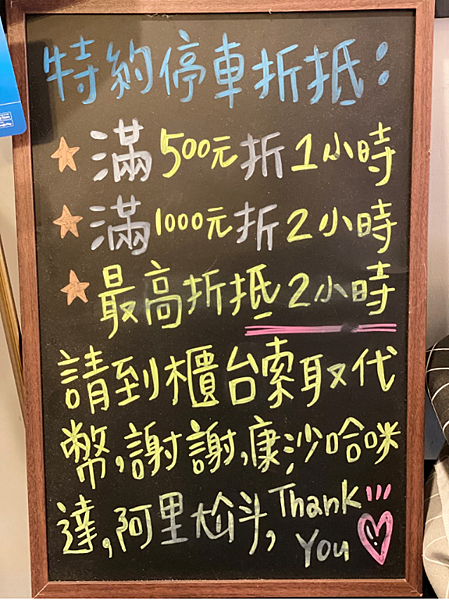 特約停車折抵:
滿500元折1小時
滿1000元折2小時
最高折抵2小時
請到櫃台索取代
幣,謝謝,康沙哈咪
達,阿里尬斗,Thank
You